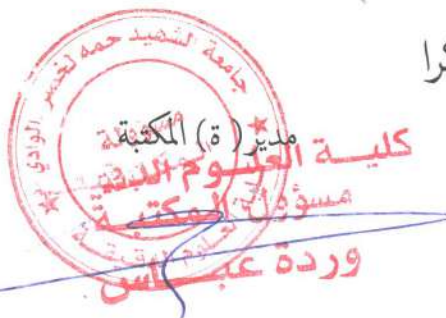 جامعة الشهيد حمه لخضر الوادي
مدير ( ة ) المكتبة
كلية العلوم الدقيقة
مسؤولة المكتبة
وردة عباس